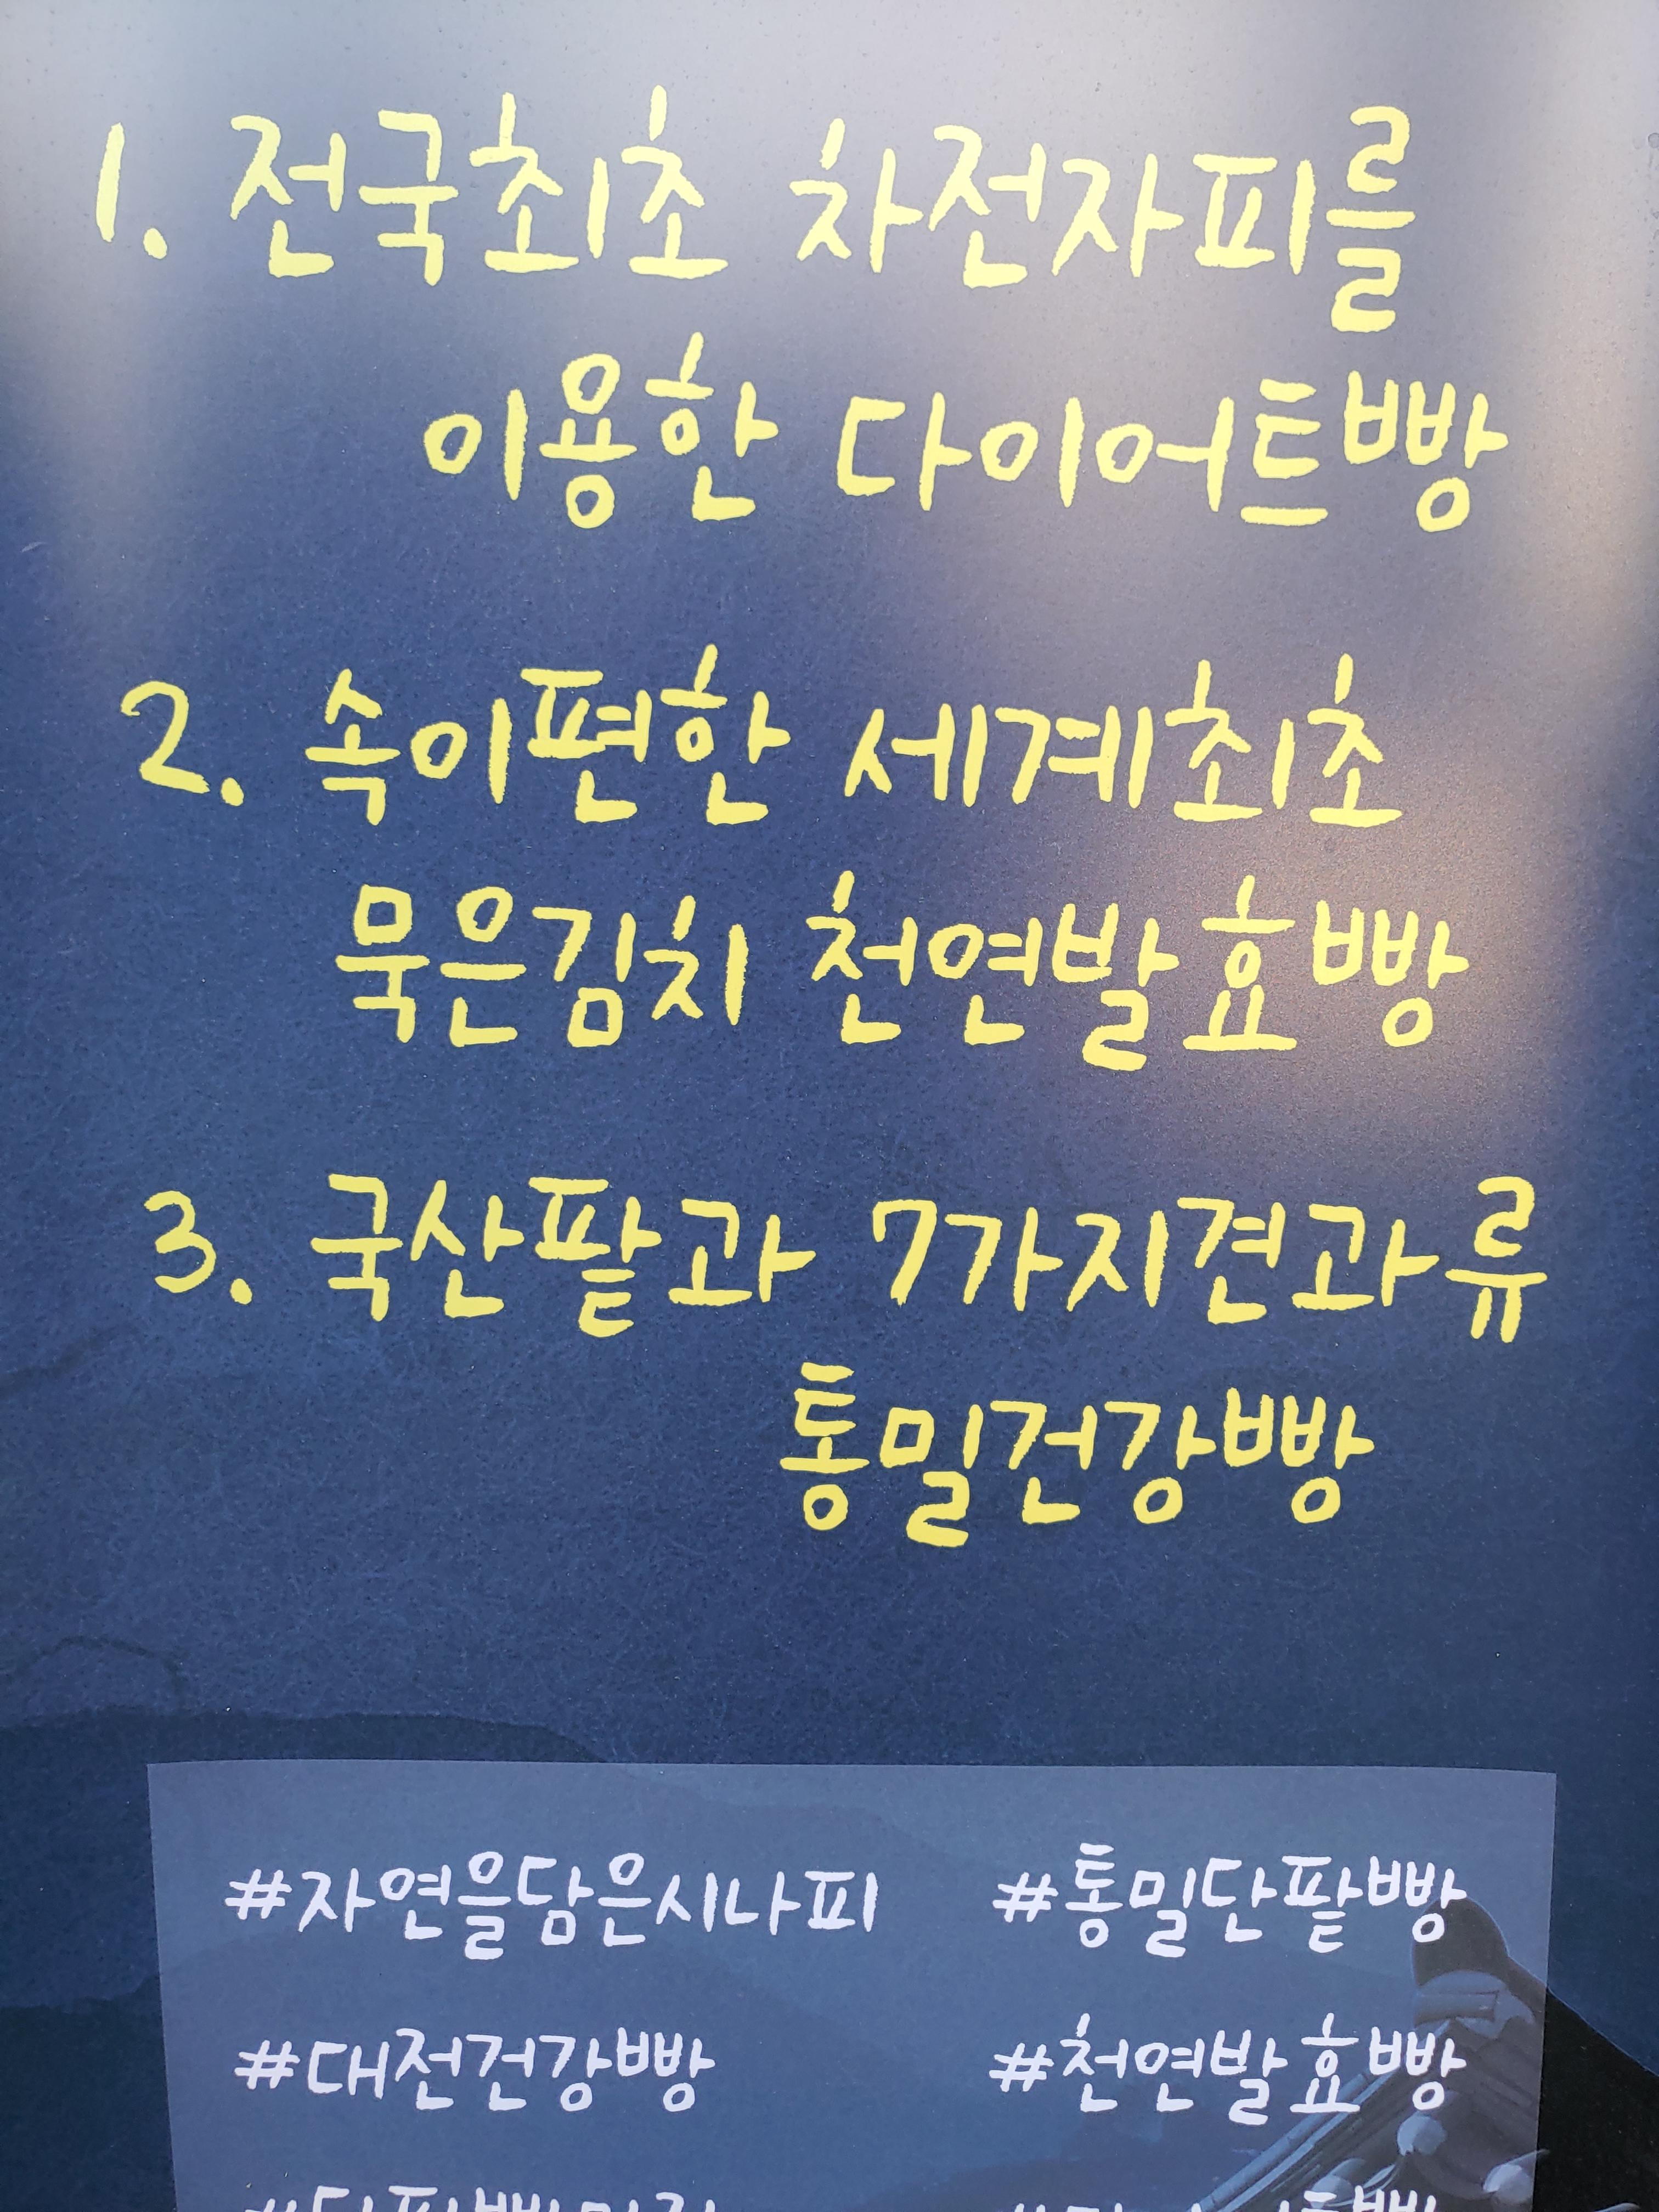 1. 전국최초 차전자피를
이용한 다이어트빵
2. 속이편한 세계최초
묵은김치 천연발효빵
3. 국산팥과 7가지견과류
통밀건강빵
#자연을담은시나피 #통밀단팥빵
#대전건강빵 #천연발효빵